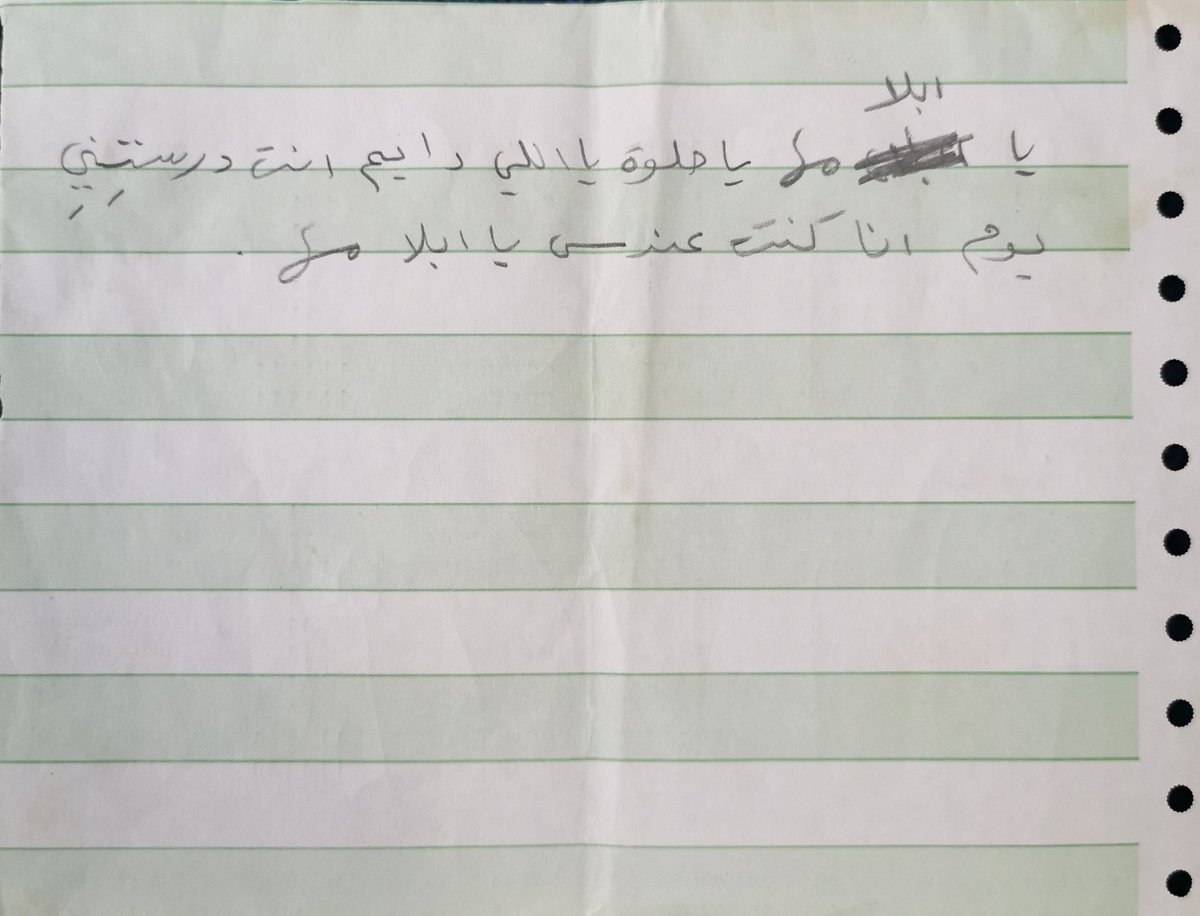 ابلا
يا مها يا حلوة يا اللي دايم انت درستِنِي
يوم انا كنت يا ابلا مها .